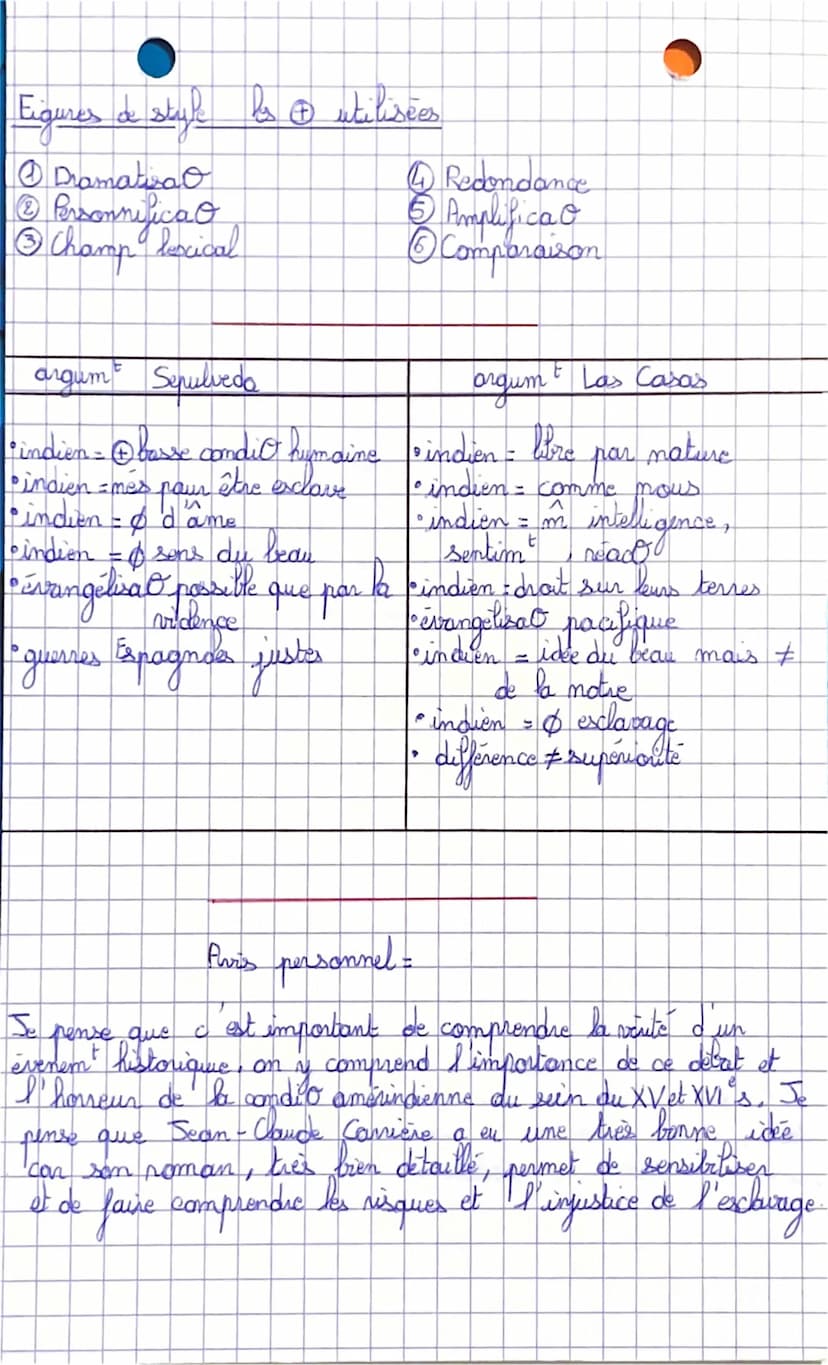 Figures de style les ⊕ utilisées
① DramatisaO
② PersonnificaO
③ Champ lexical
④ Redondance
⑤ AmplificaO
⑥ Comparaison
argumᵗ Sepulveda
• indien = ⊕ basse condiO humaine
• indien = nés pour être esclave
• indien = ∅ d'âme
• indien = ∅ sens du beau
• évangélisaO possible que par la
violence
• guerres Espagnoles justes
argumᵗ Las Casas
• indien = libre par nature
• indien = comme nous
• indien = m̂ intelligence,
sentimᵗ, réacO
• indien = droit sur leurs terres
• évangélisaO pacifique
• indien = idée du beau mais ≠
de la notre
• indien = ∅ esclavage
• différence ≠ supériorité
Avis personnel =
Je pense que c'est important de comprendre la vérité d'un
évenemᵗ historique, on y comprend l'importance de ce débat et
l'horreur de la condiO amérindienne du sein du XV et XVIᵉ s. Je
pense que Jean-Claude Carrière a eu une très bonne idée
car son roman, très bien détaillé, permet de sensibiliser
et de faire comprendre les risques et l'injustice de l'esclavage.